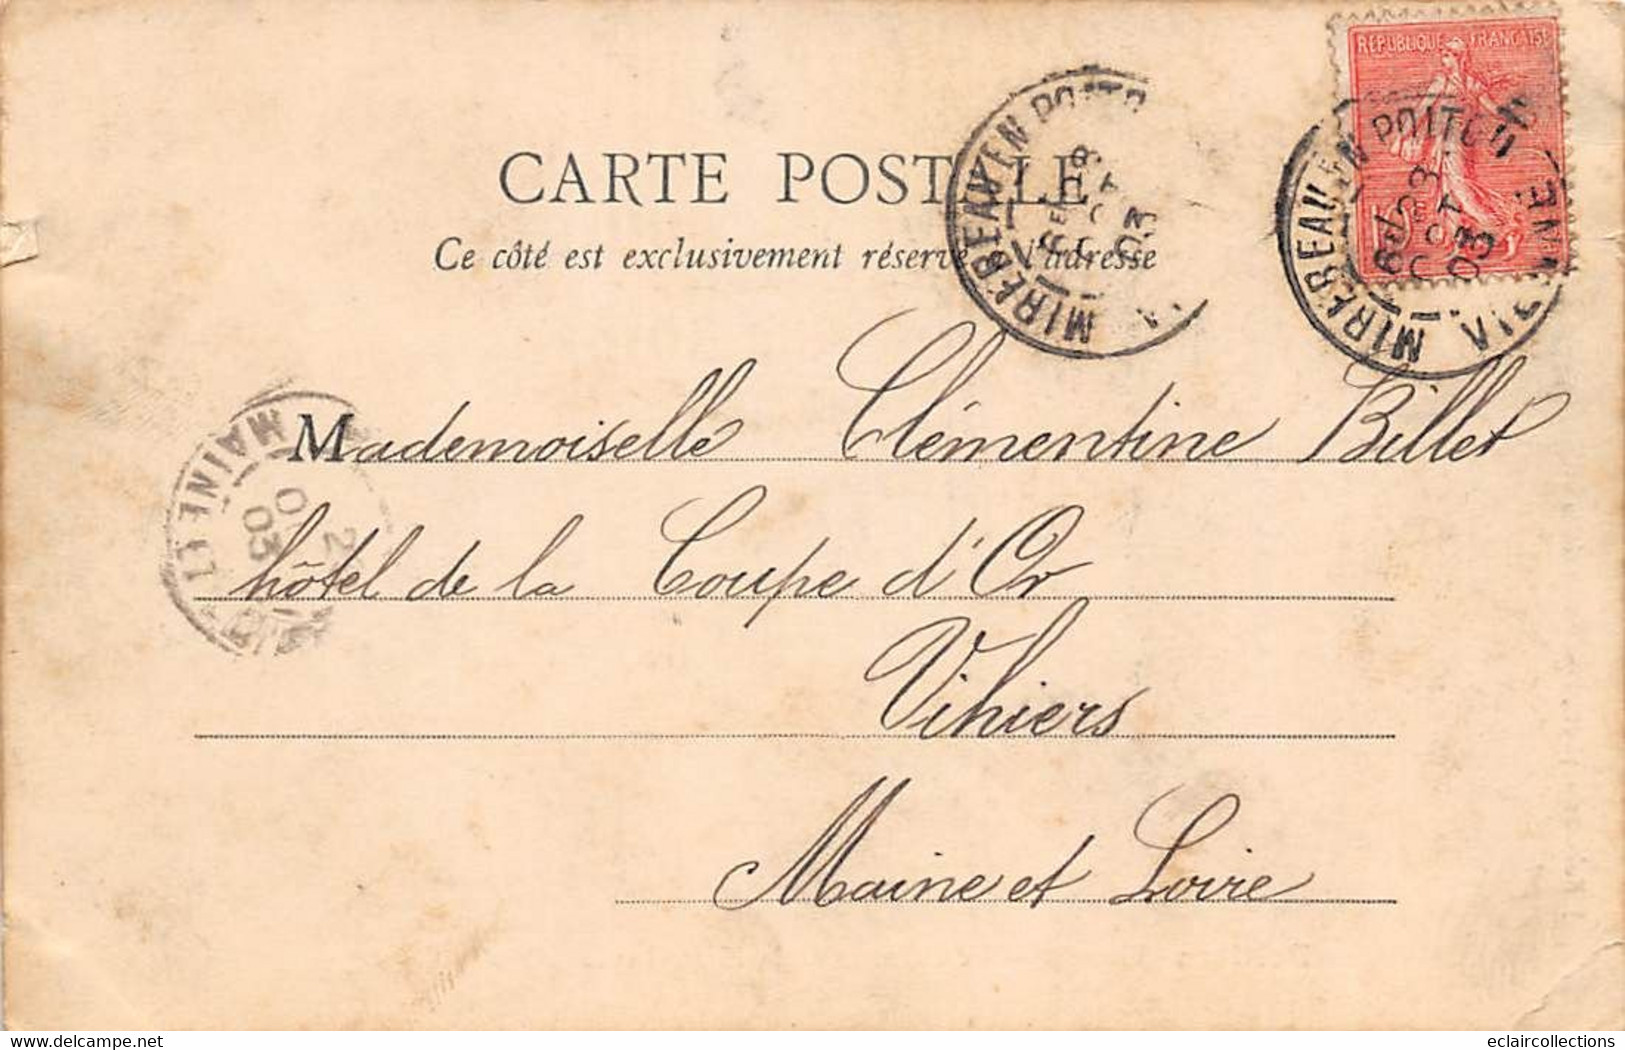 REPUBLIQUE FRANÇAISE
MIREBEAU EN POITOU
VIENNE
03
MIREBEAU EN POITOU
03
CARTE POSTALE
Ce côté est exclusivement réservé à l'adresse
Mademoiselle Clémentine Billet
hôtel de la Coupe d'Or
Vihiers
Maine et Loire
MAINE ET L
03
eclaircollections